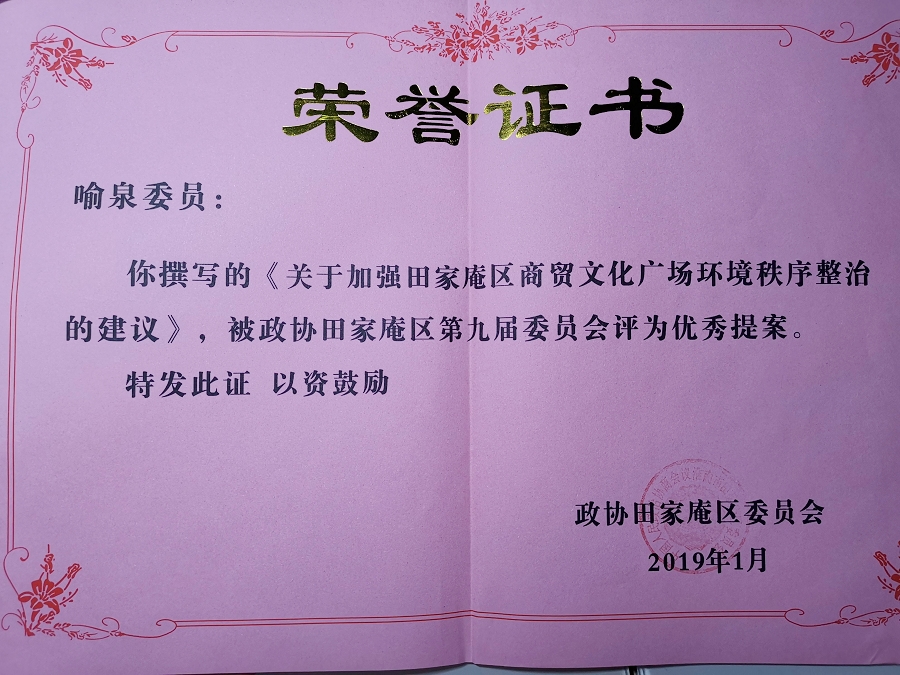 荣誉证书
喻泉委员：
你撰写的《关于加强田家庵区商贸文化广场环境秩序整治
的建议》，被政协田家庵区第九届委员会评为优秀提案。
特发此证 以资鼓励
政协田家庵区委员会
2019年1月